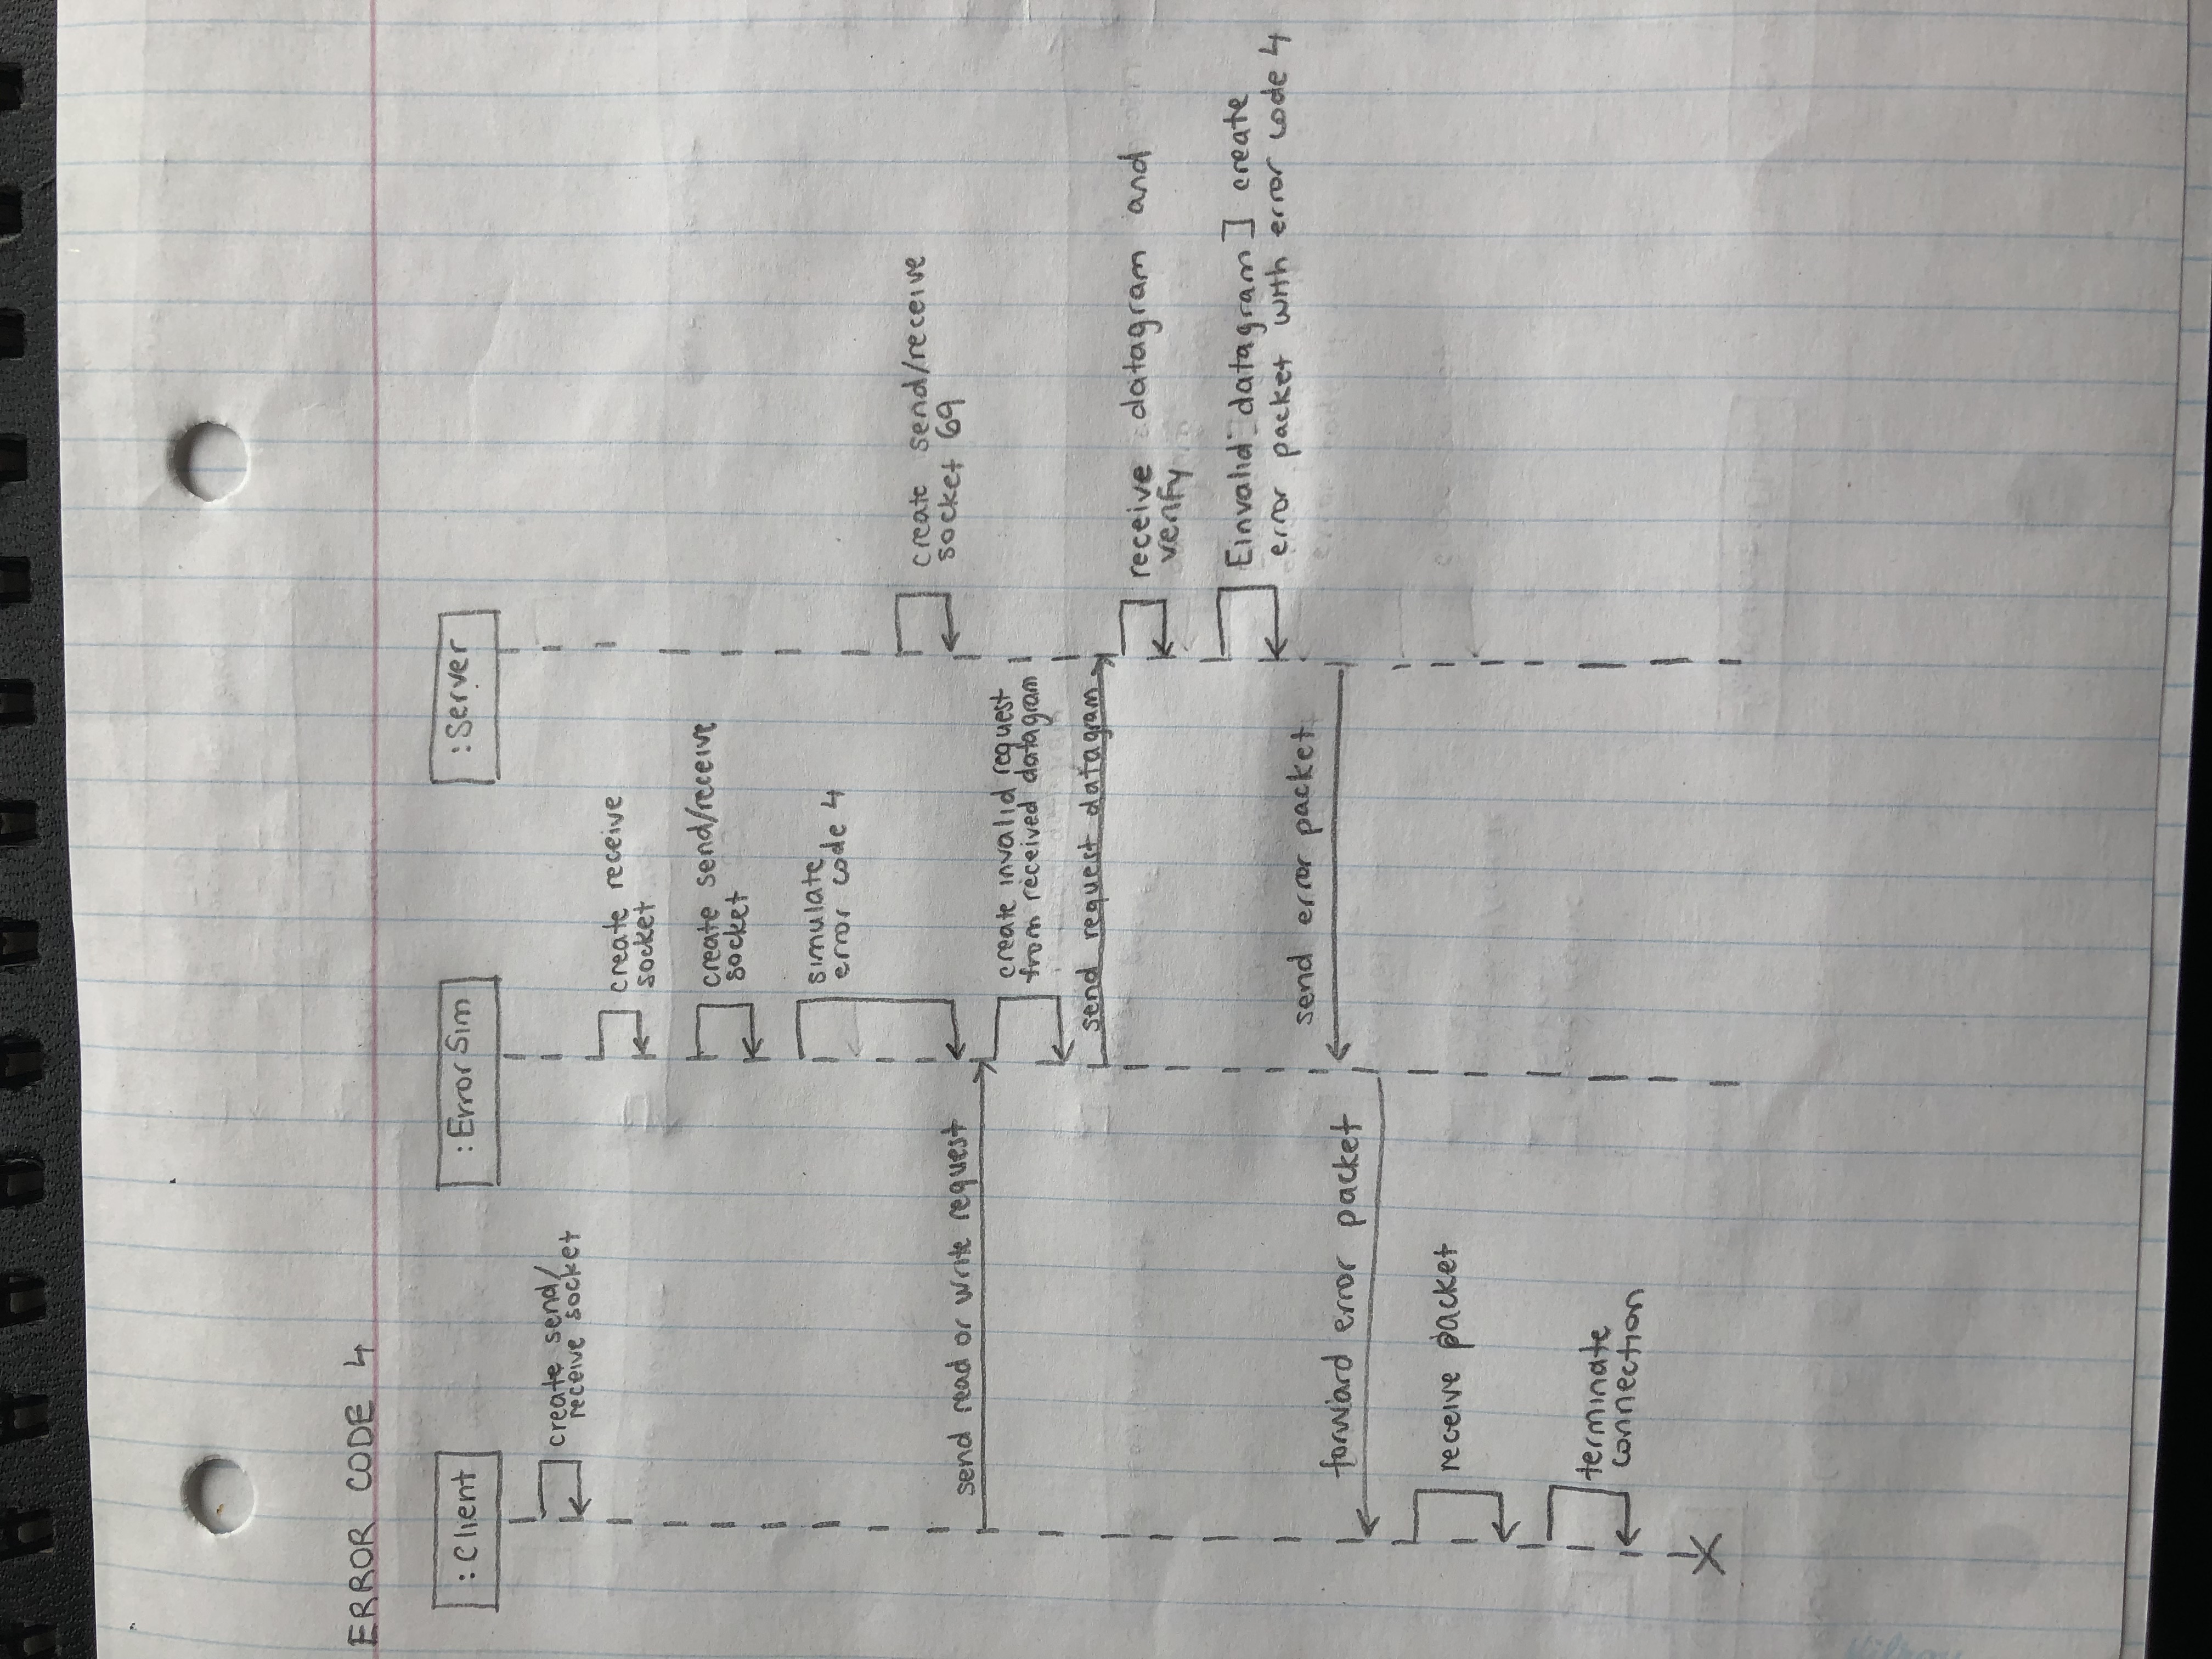 ERROR CODE 4
:Client
:ErrorSim
:Server
create send/
receive socket
create receive
socket
create send/receive
socket
simulate
error code 4
create send/receive
socket 69
send read or write request
create invalid request
from received datagram
send request datagram
receive datagram and
verify
[invalid datagram] create
error packet with error code 4
send error packet
forward error packet
receive packet
terminate
connection